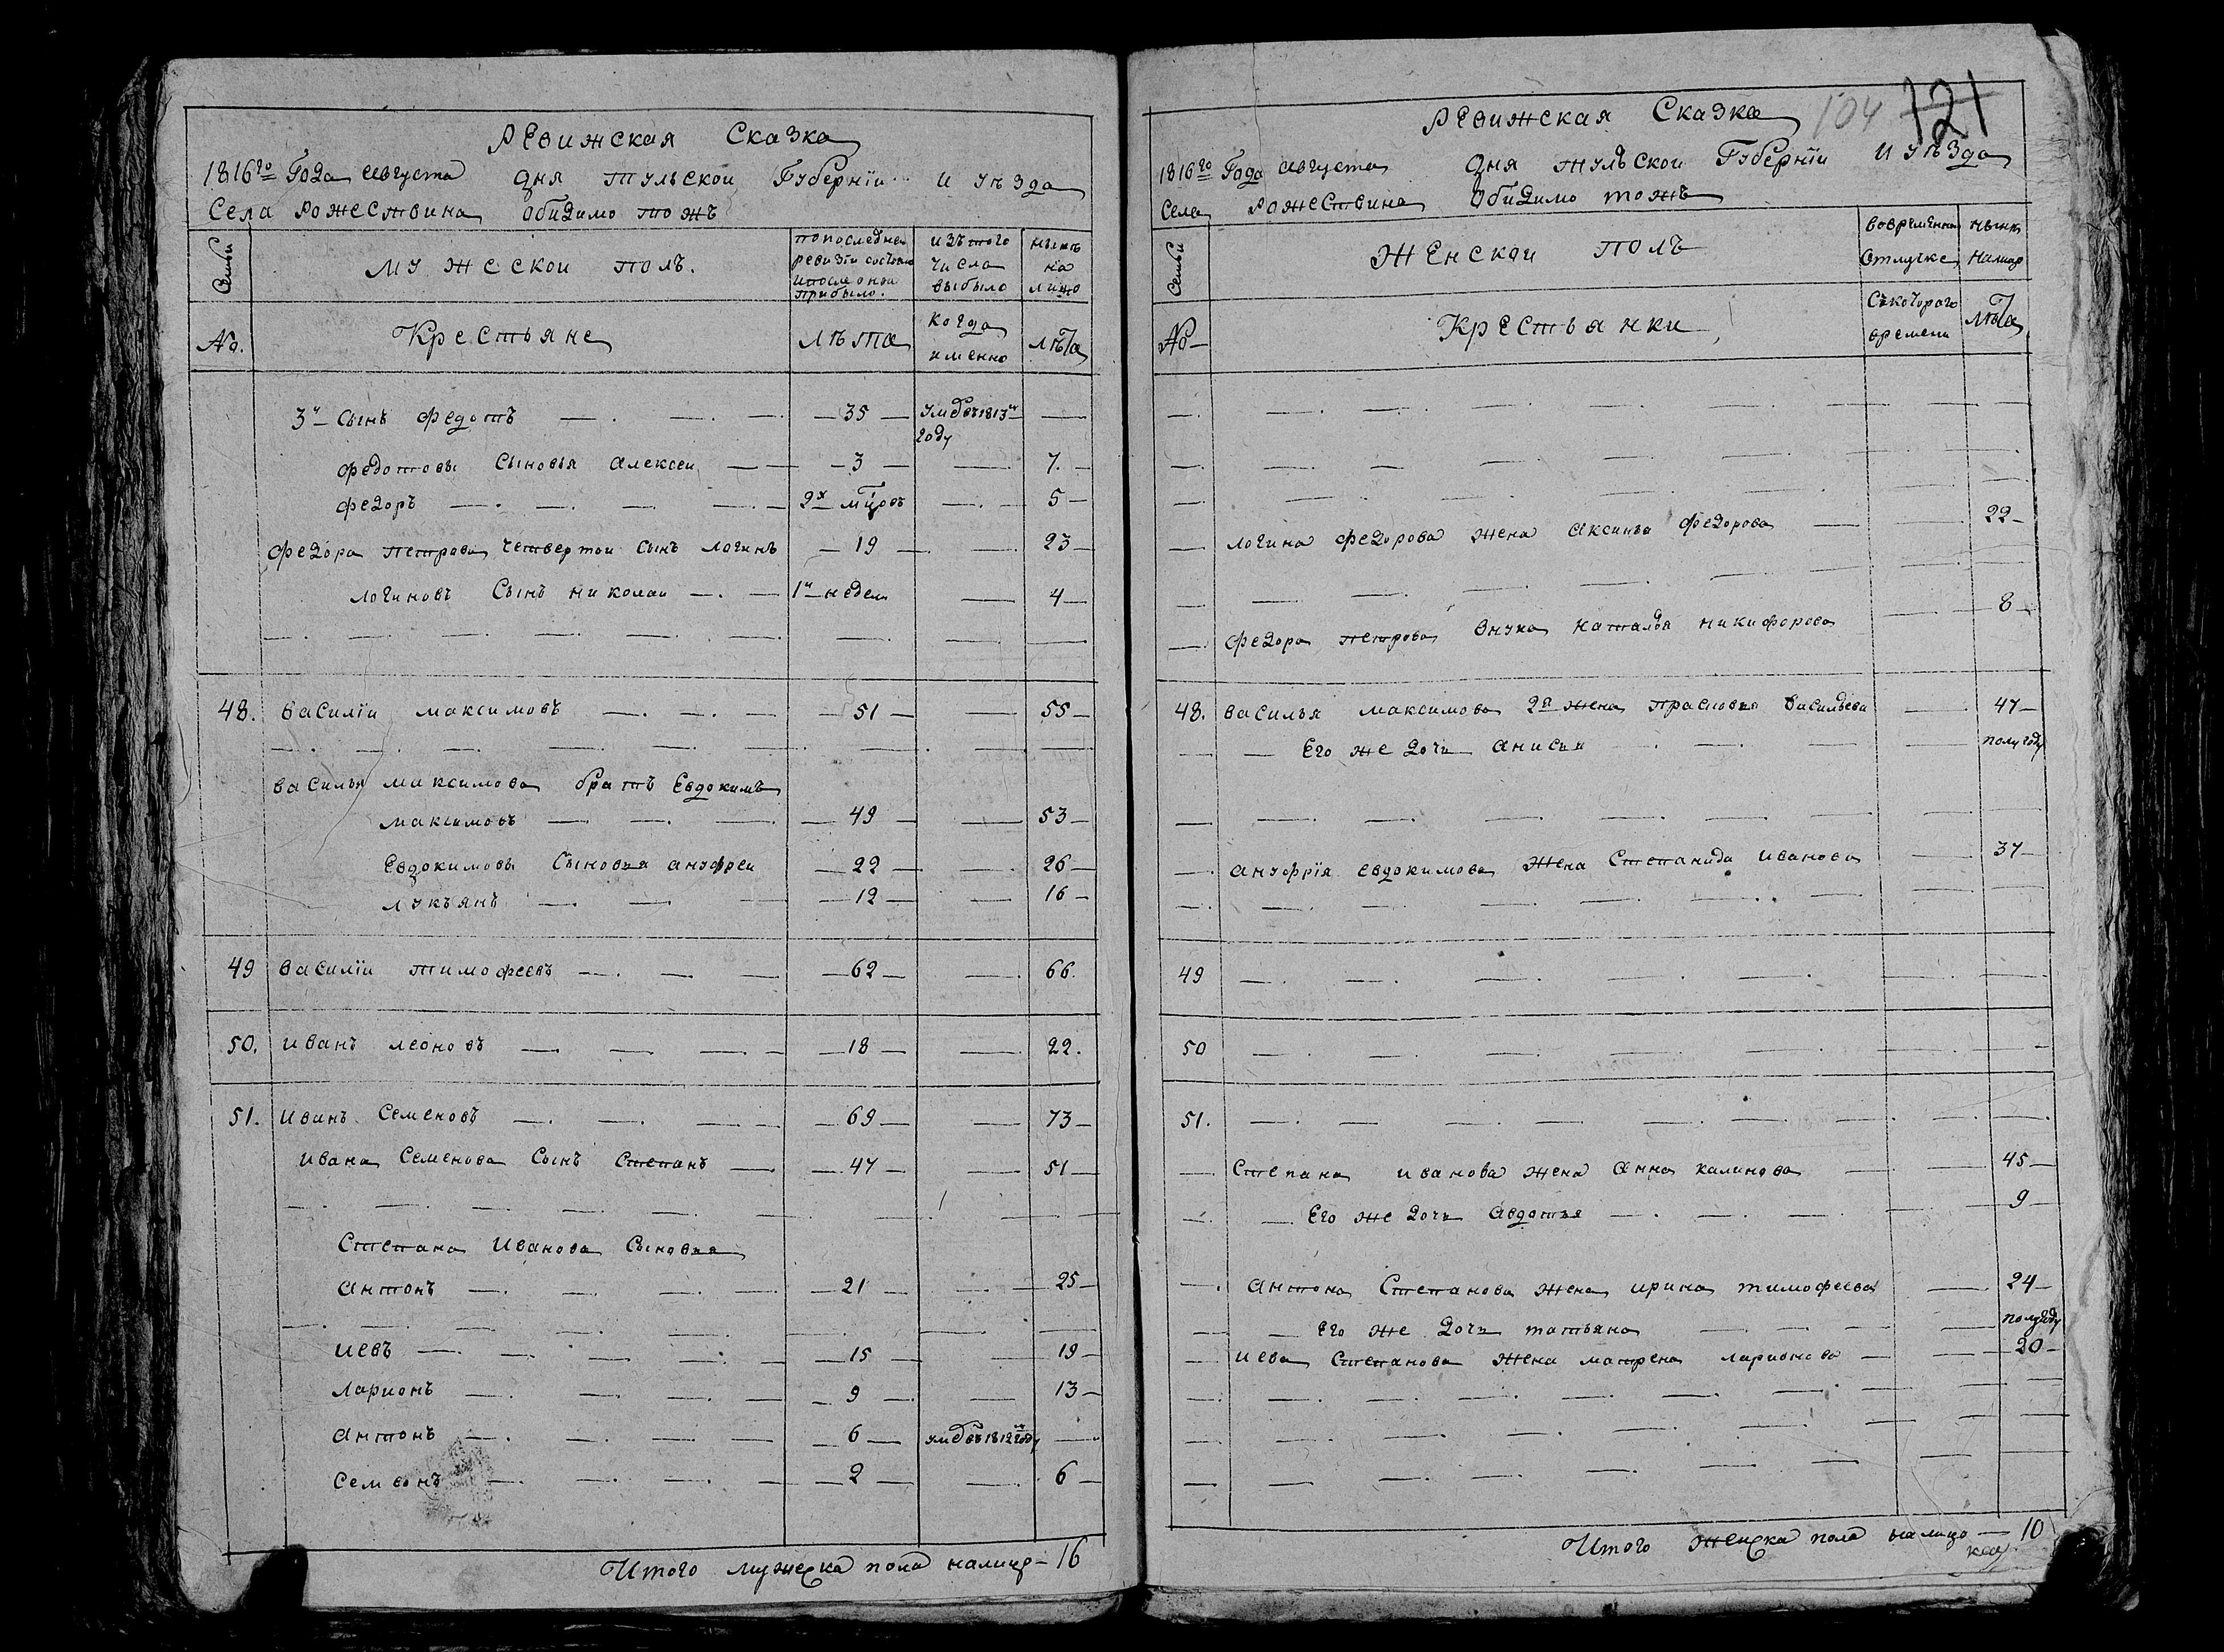 Ревижская Сказка
1816го Года августа дня тульской Губернїи и уѣзда
Села Рожествина Обидимо тожъ
Семьи
мужескои полъ.
по последнеи ревизїи состояло и после онои прибыло.
изъ того числа выбыло
нынѣ на лицо
№.
Крестьяне
лѣта
когда именно
лѣта
3й сынъ Федотъ — 35 — умре въ 1813м году —
Федотовы сыновья алексеи — 3 — 7.
Федоръ — 2х мцовъ — 5
Федора петрова четвертои сынъ логинъ — 19 — 23
логиновъ сынъ николаи — 1й недели — 4
48. василїи максимовъ — 51 — 55
василья максимова братъ Евдокимъ
максимовъ — 49 — 53
Евдокимовы сыновья ануфреи — 22 — 26
лукъянъ — 12 — 16
49 василїи тимофеевъ — 62 — 66.
50. иванъ леоновъ — 18 — 22.
51. иванъ семеновъ — 69 — 73
ивана семенова сынъ степанъ — 47 — 51
Степана Иванова сыновья
антонъ — 21 — 25
иевъ — 15 — 19
ларионъ — 9 — 13
антонъ — 6 — умре въ 1812м году —
семионъ — 2 — 6
Итого мужеска пола налицо — 16
104 121
Ревижская Сказка
1816го Года августа дня тульскои Губернїи и уѣзда
Села Рожествина Обидимо тожъ
Семьи
Женскои полъ
во времянной отлучке
нынѣ налицо
№
Крестьянки
съ которого времени
лѣта
логина федорова жена аксинья федорова — 22
федора петрова внука наталья никифорова — 8
48. василья максимова 2я жена прасковья васильева — 47
Его же дочь анисья — полугоду
ануфрїя евдокимова жена степанида иванова — 37
49
50
51.
Степана иванова жена анна калинова — 45
Его же дочь авдотья — 9
антона степанова жена ирина тимофеева — 24
Его же дочь татьяна — полугоду
иева степанова жена матрена ларионова — 20
Итого женска пола налицо — 10